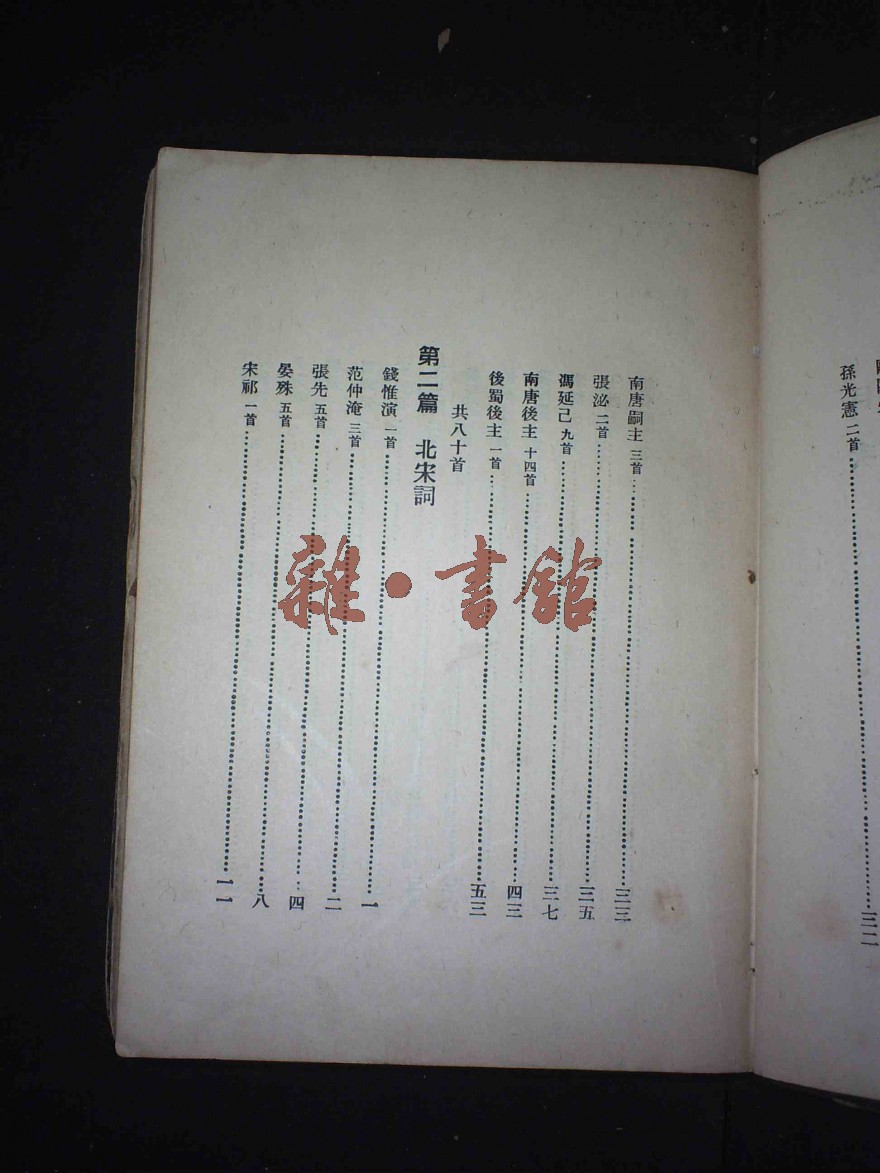 孫光憲 二首……三二
南唐嗣主 三首……三三
張泌 二首……三五
馮延己 九首……三七
南唐後主 十四首……四三
後蜀後主 一首……五三
共八十首
第二篇 北宋詞
錢惟演 一首……一
范仲淹 三首……二
張先 五首……四
晏殊 五首……八
宋祁 一首……一一
雜·書館